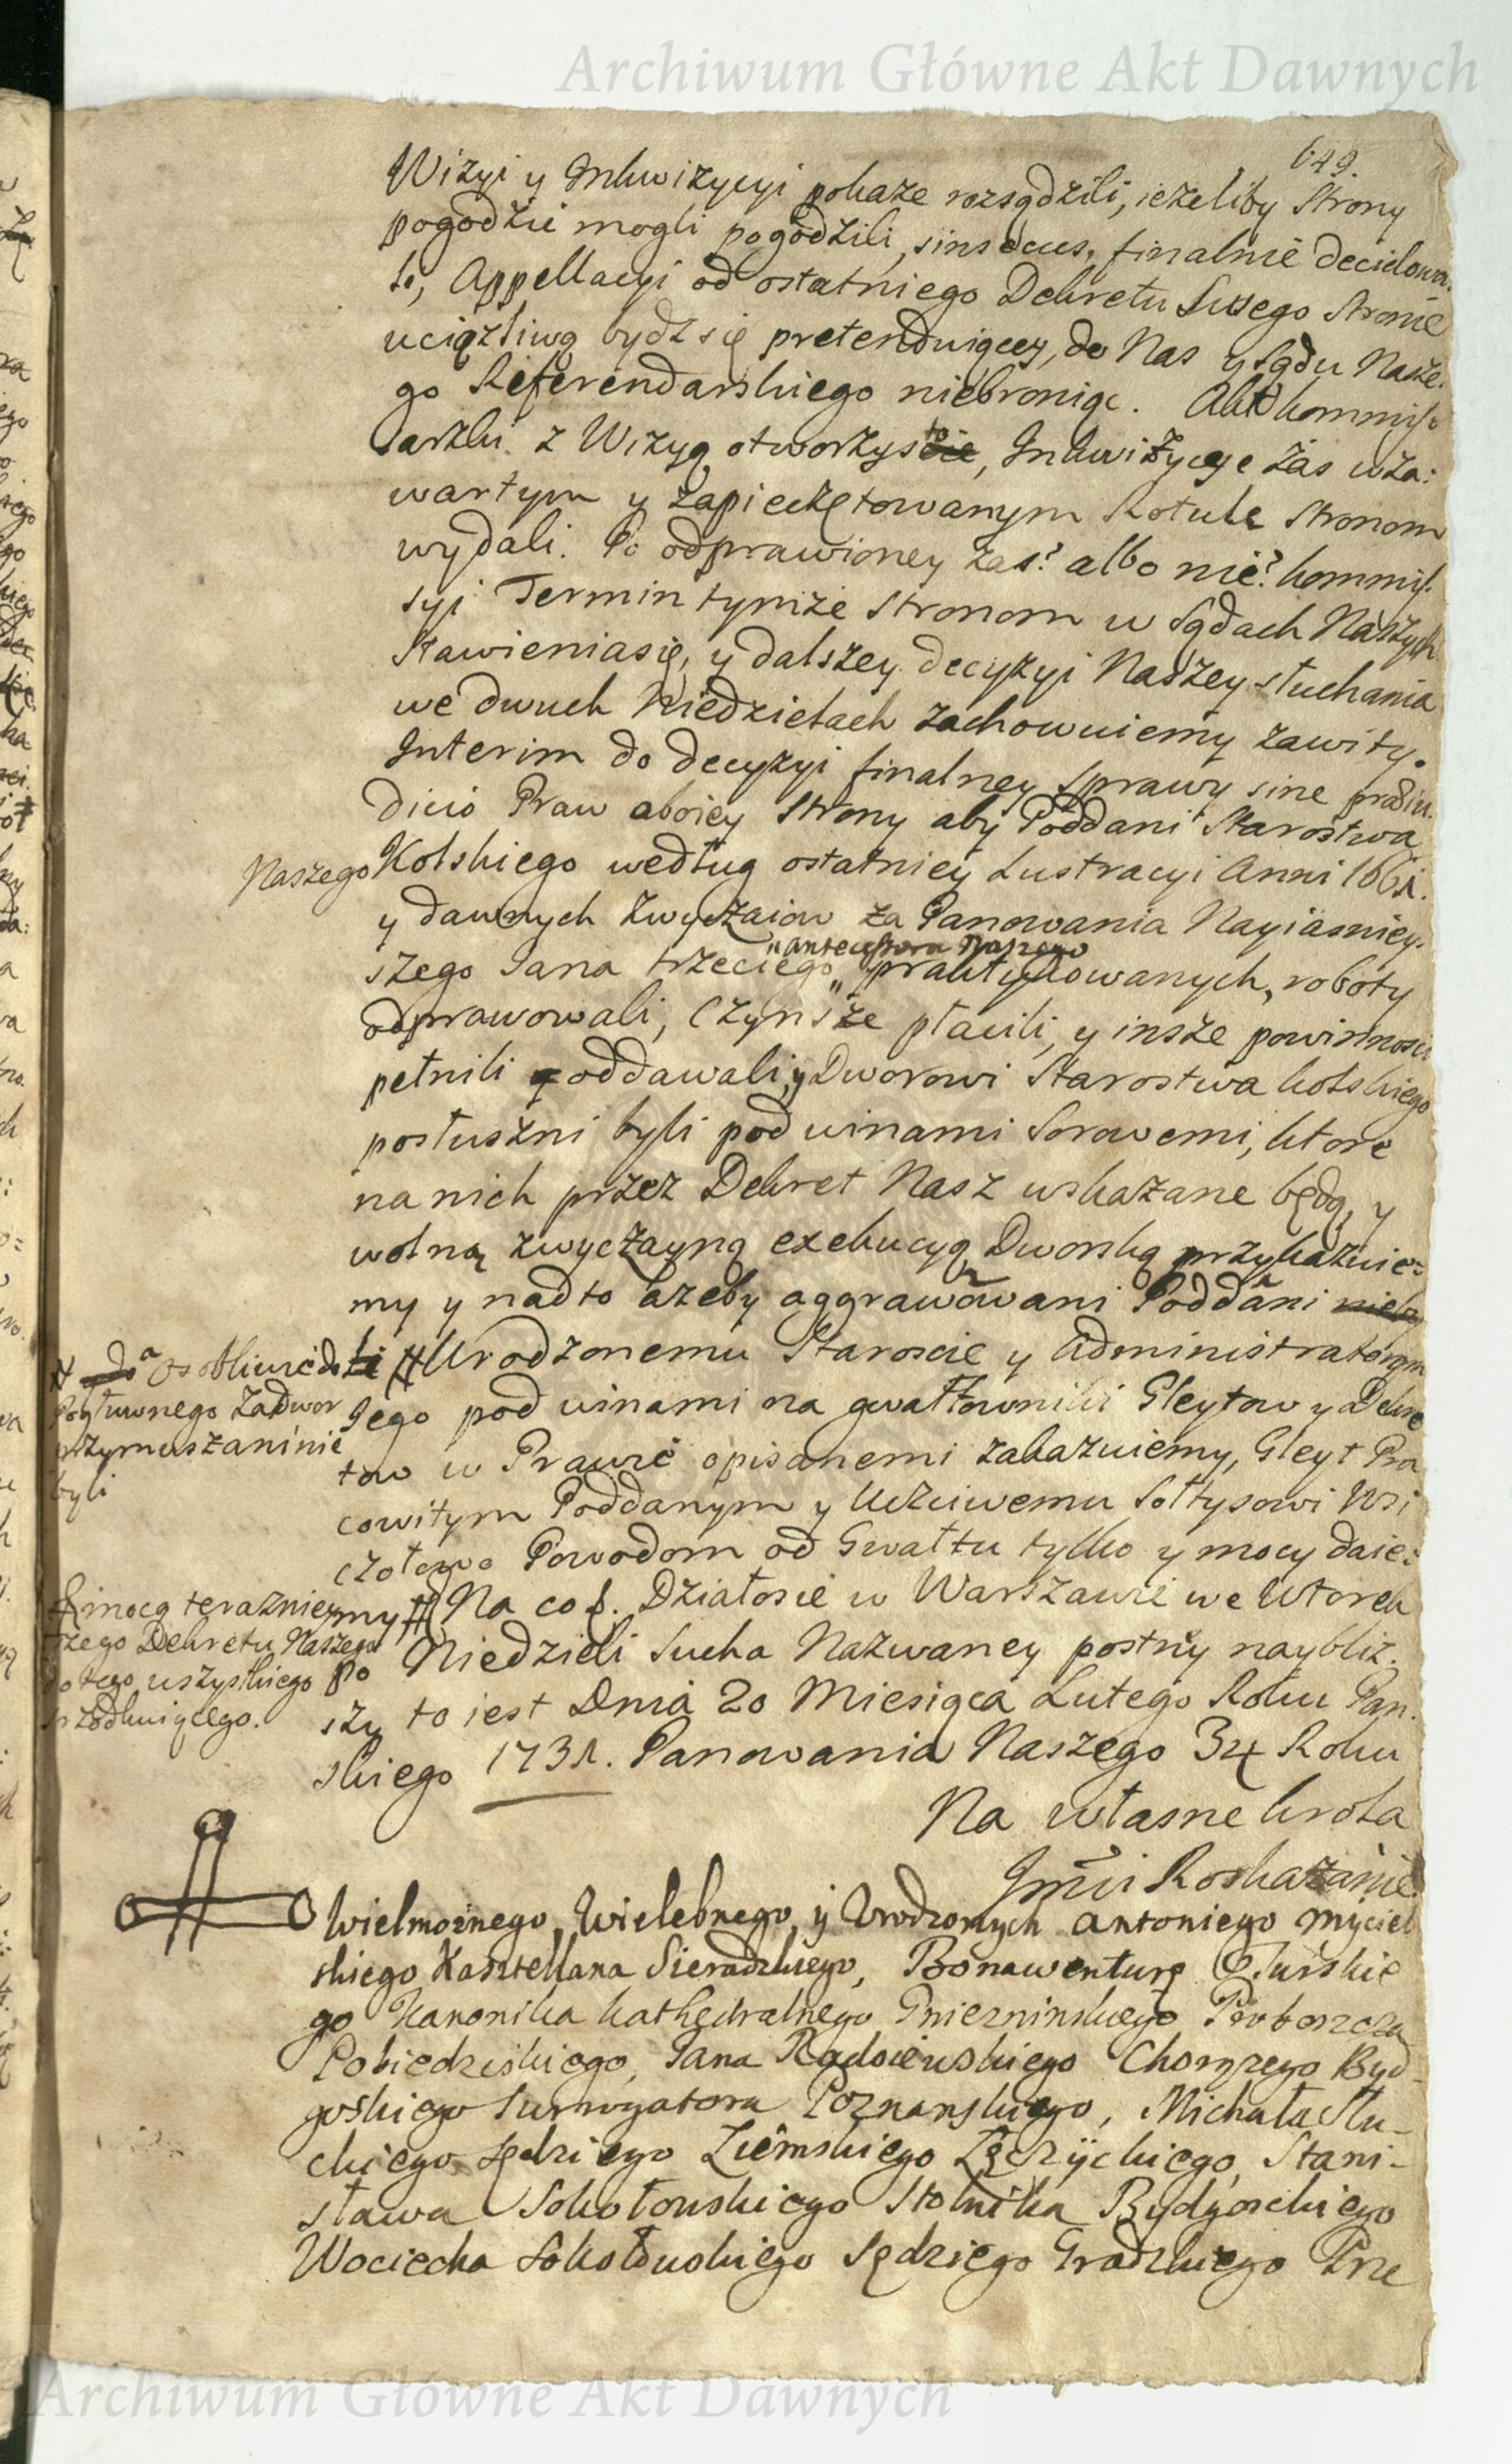 Archiwum Główne Akt Dawnych
649.
Wizyi y Inkwizycyi pokaze rozsądzili, ieżeliby Strony
pogodzić mogli pogodzili, sin secus, finalnie decidowa
li, Appellacyi od ostatniego Dekretu Swego Stronie
uciążliwą bydz się pretenduiącey, do Nas y Sądu Nasze
go Referendarskiego niebroniąc. Akt kommis
sarzki z Wizyą otworzysto, Inkwizycye zas w za:
wartym y zapieczętowanym Rotule Stronom
wydali. Po odprawioney zas? albo nie? kommis.
syi Termin tymże Stronom w Sądach Naszych
Stawieniasię, y dalszey decyzyi Naszey słuchania
we dwuch Niedzielach zachowuiemy zawity.
Interim do decyzyi finalney Sprawy sine præiu.
dicio Praw aboiey Strony aby Poddani Starostwa
Naszego Kolskiego według ostatniey Lustracyi Anni 1661.
y dawnych zwyczaiow za Panowania Nayiasniey.
szego Jana trzeciego „ antecessora Naszego „ praktykowanych, roboty
odprawowali, Czynsze płacili, y insze powinnosci
pełnili oddawali, y Dworowi Starostwa kolskiego
posłuszni byli pod winami Sorowemi, ktore
na nich przez Dekret Nasz wskazane będą, y
wolną zwyczayną exekucyą Dworską przykazuie=
my y nadto azeby aggrawowani Poddani nieby
li # Urodzonemu Staroscie y Administratorom
# do a osobliwie do
Pogłownego Zadwor
przymuszani nie
byli
Jego pod winami na gwałtowniki Gleytow y Dekre
tow w Prawie opisanemi zakazuiemy, Gleyt Pra
cowitym Poddanym y Uczciwemu Sołtysowi Wsi
czołowo Powodom od Gwałtu tylko y mocy daie=
my # Na co ſ. Działosie w Warszawie we Wtorek
# mocą teraznieyszego Dekretu Naszego
do tego wszystkiego
po Niedzieli Sucha Nazwaney postny naybliz.
szy to iest Dnia 20 Miesiąca Lutego Roku Pan.
skiego 1731. Panowania Naszego 34 Roku
Na własne krola
Jmci Roskazanie.
Wielmoznego, Wielebnego, ÿ Urodzonych Antoniego Myciel
skiego Kasztellana Sieradzkiego, Bonawenturę Turskie
go Kanonika kathedralnego Gniezninskiego Proboszcza
Pobiedziskiego, Jana Radoiewskiego Chorązego Byd-
goskiego Surrogatora Poznanskiego, Michała Słu-
ckiego Sędziego Ziemskiego Łęczÿckiego, Stani-
sława Sokołowskiego Stolnika Bydgoskiego
Wociecha Sokołowskiego Sędziego Grodzkiego Prze
Archiwum Główne Akt Dawnych